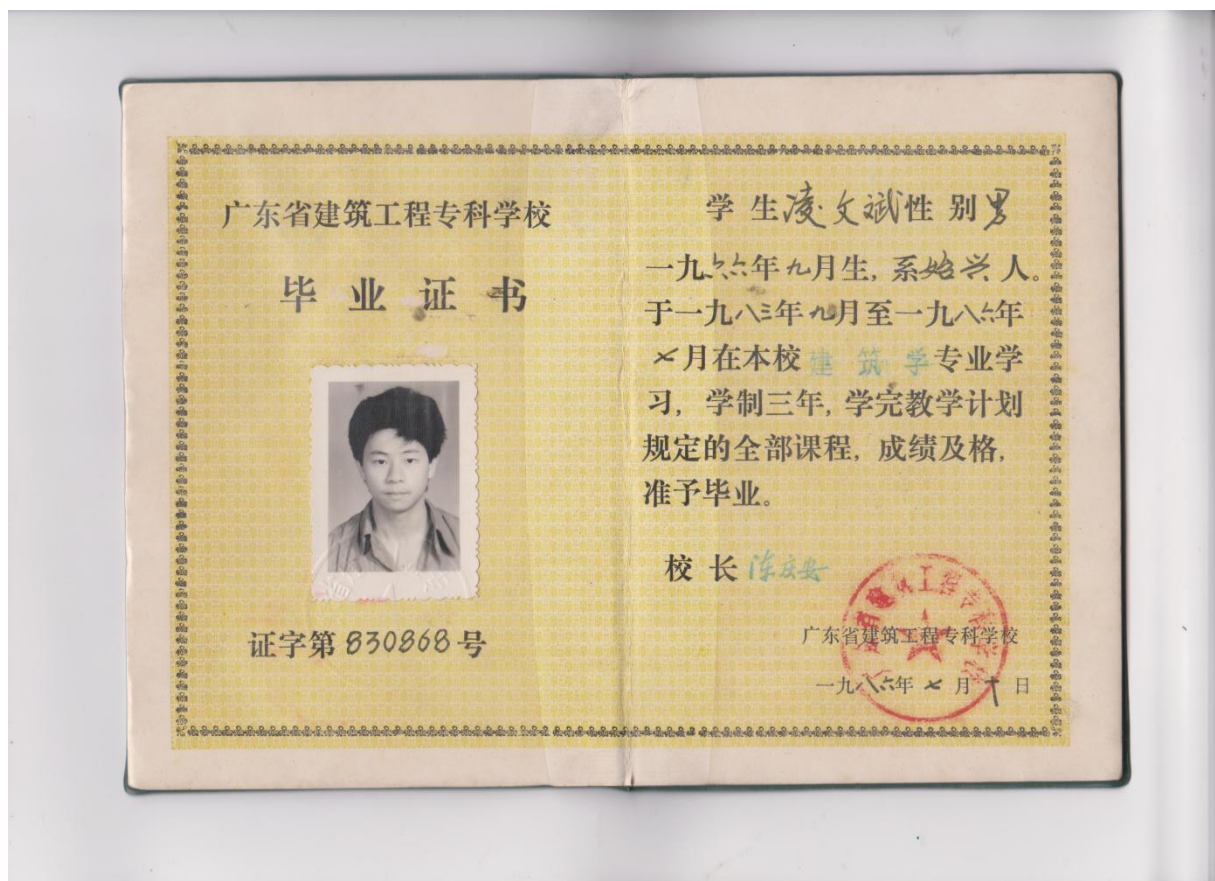 广东省建筑工程专科学校
毕业证书
证字第830868号
学生凌文斌性别男
一九六六年九月生,系始兴人。
于一九八三年九月至一九八六年
七月在本校建筑学专业学
习,学制三年,学完教学计划
规定的全部课程,成绩及格,
准予毕业。
校长陈庆安
广东省建筑工程专科学校
广东省建筑工程专科学校
一九八六年七月十日